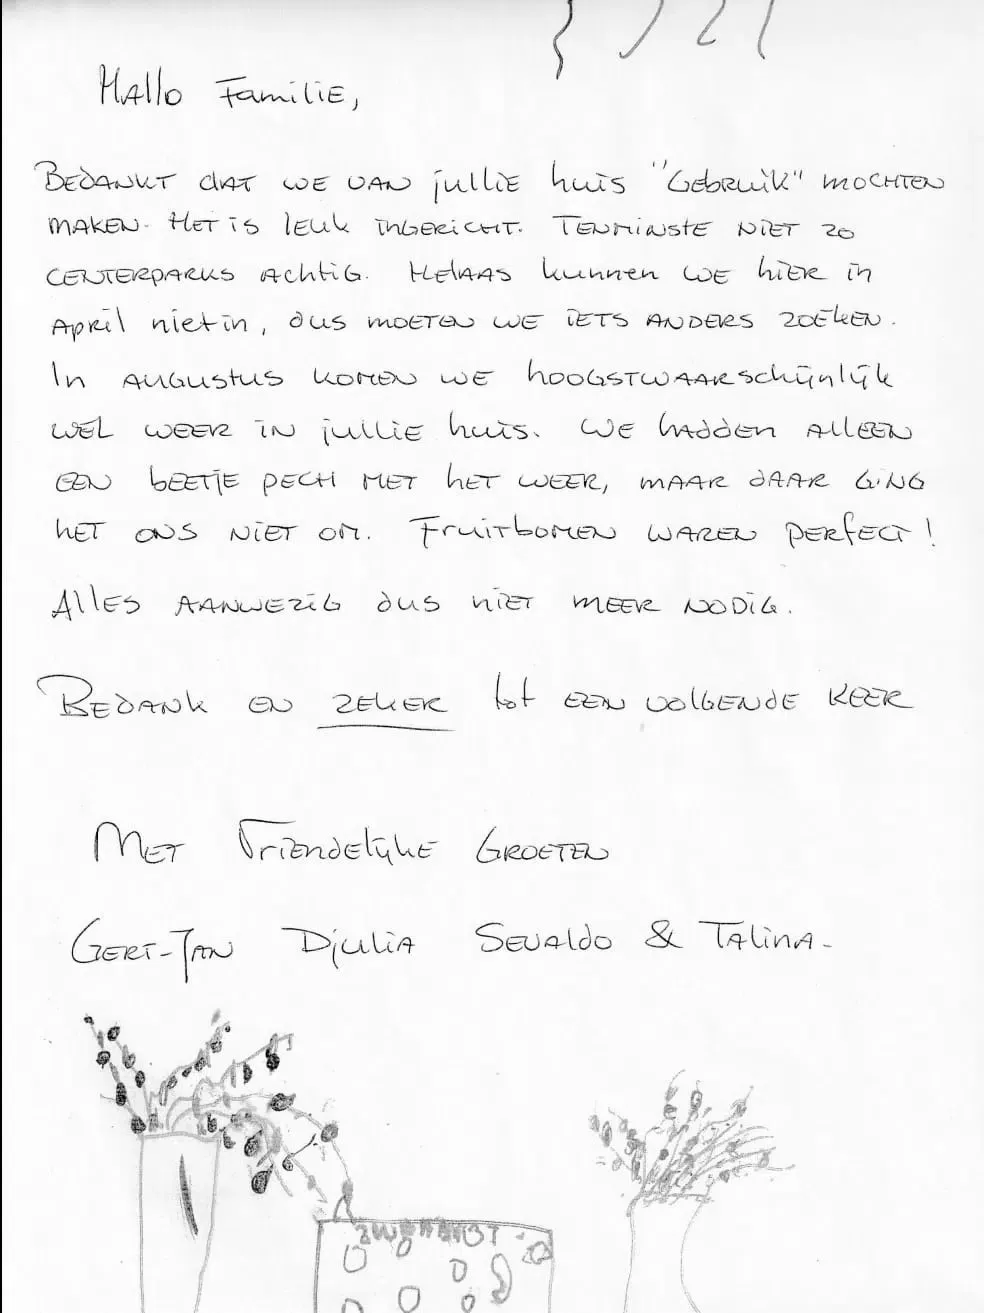 Hallo Familie,
Bedankt dat we van jullie huis "Gebruik" mochten
maken. Het is leuk ingericht. Tenminste niet zo
centerparks achtig. Helaas kunnen we hier in
April niet in, dus moeten we iets anders zoeken.
In augustus komen we hoogstwaarschijnlijk
wel weer in jullie huis. We hadden alleen
een beetje pech met het weer, maar daar ging
het ons niet om. Fruitbomen waren perfect!
Alles aanwezig dus niet meer nodig.
Bedank en zeker tot een volgende keer
Met Vriendelijke Groeten
Gert-Jan Djulia Sevaldo & Talina-